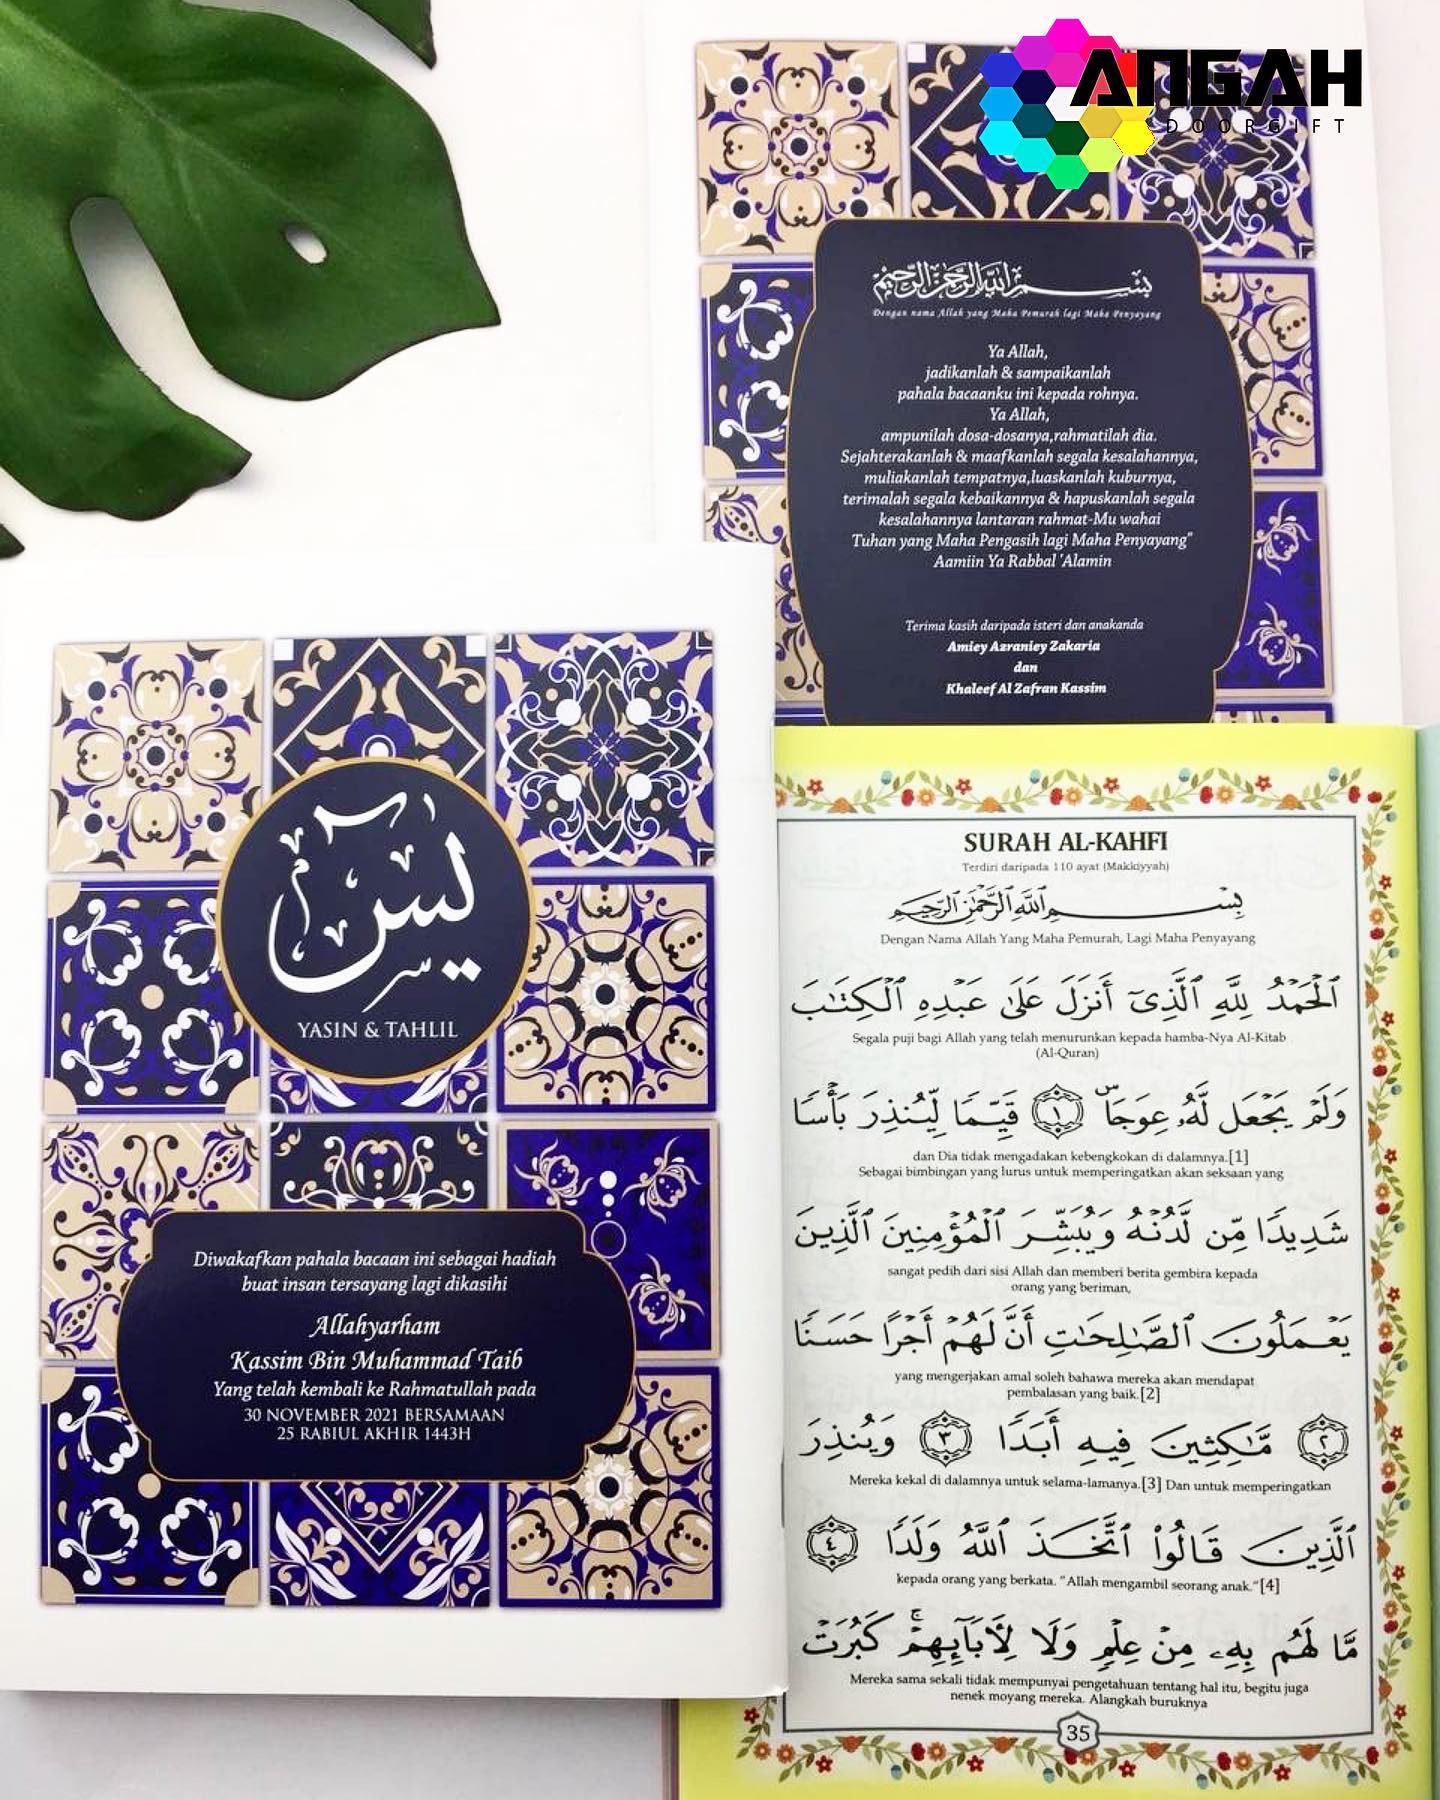 ANGAH
DOORGIFT
بسم الله الرحمن الرحيم
Dengan nama Allah yang Maha Pemurah lagi Maha Penyayang
Ya Allah,
jadikanlah & sampaikanlah
pahala bacaanku ini kepada rohnya.
Ya Allah,
ampunilah dosa-dosanya,rahmatilah dia.
Sejahterakanlah & maafkanlah segala kesalahannya,
muliakanlah tempatnya,luaskanlah kuburnya,
terimalah segala kebaikannya & hapuskanlah segala
kesalahannya lantaran rahmat-Mu wahai
Tuhan yang Maha Pengasih lagi Maha Penyayang"
Aamiin Ya Rabbal 'Alamin
Terima kasih daripada isteri dan anakanda
Amiey Azraniey Zakaria
dan
Khaleef Al Zafran Kassim
يس
YASIN & TAHLIL
Diwakafkan pahala bacaan ini sebagai hadiah
buat insan tersayang lagi dikasihi
Allahyarham
Kassim Bin Muhammad Taib
Yang telah kembali ke Rahmatullah pada
30 NOVEMBER 2021 BERSAMAAN
25 RABIUL AKHIR 1443H
SURAH AL-KAHFI
Terdiri daripada 110 ayat (Makkiyyah)
بِسْمِ ٱللَّهِ ٱلرَّحْمَٰنِ ٱلرَّحِيمِ
Dengan Nama Allah Yang Maha Pemurah, Lagi Maha Penyayang
ٱلْحَمْدُ لِلَّهِ ٱلَّذِىٓ أَنزَلَ عَلَىٰ عَبْدِهِ ٱلْكِتَٰبَ
Segala puji bagi Allah yang telah menurunkan kepada hamba-Nya Al-Kitab
(Al-Quran)
وَلَمْ يَجْعَل لَّهُۥ عِوَجَاۜ ١ قَيِّمًا لِّيُنذِرَ بَأْسًا
dan Dia tidak mengadakan kebengkokan di dalamnya.[1]
Sebagai bimbingan yang lurus untuk memperingatkan akan seksaan yang
شَدِيدًا مِّن لَّدُنْهُ وَيُبَشِّرَ ٱلْمُؤْمِنِينَ ٱلَّذِينَ
sangat pedih dari sisi Allah dan memberi berita gembira kepada
orang yang beriman,
يَعْمَلُونَ ٱلصَّٰلِحَٰتِ أَنَّ لَهُمْ أَجْرًا حَسَنًا
yang mengerjakan amal soleh bahawa mereka akan mendapat
pembalasan yang baik.[2]
٢ مَّٰكِثِينَ فِيهِ أَبَدًا ٣ وَيُنذِرَ
Mereka kekal di dalamnya untuk selama-lamanya.[3] Dan untuk memperingatkan
ٱلَّذِينَ قَالُوا۟ ٱتَّخَذَ ٱللَّهُ وَلَدًا ٤
kepada orang yang berkata. "Allah mengambil seorang anak."[4]
مَّا لَهُم بِهِۦ مِنْ عِلْمٍ وَلَا لِءَابَآئِهِمْ ۚ كَبُرَتْ
Mereka sama sekali tidak mempunyai pengetahuan tentang hal itu, begitu juga
nenek moyang mereka. Alangkah buruknya
35